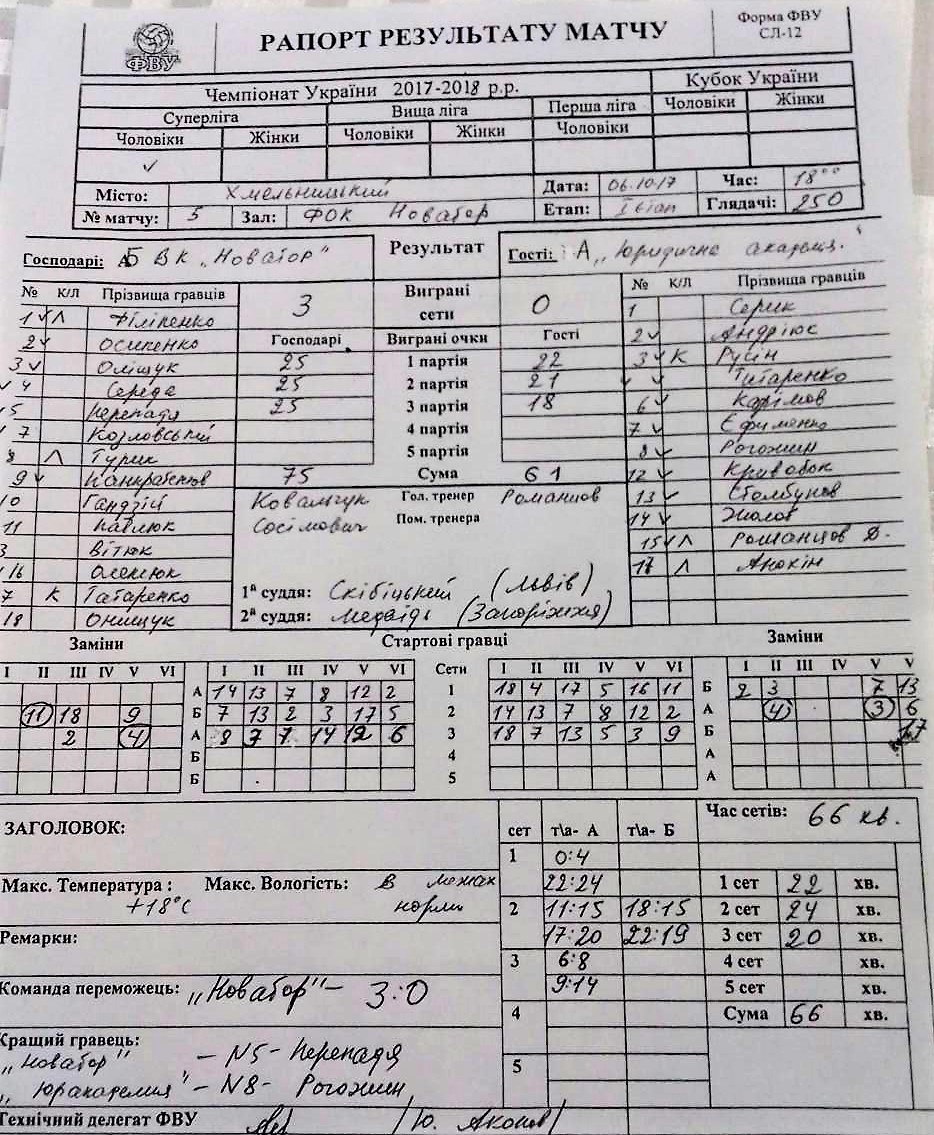 ФВУ
РАПОРТ РЕЗУЛЬТАТУ МАТЧУ
Форма ФВУ
СЛ-12
Чемпіонат України 2017-2018 р.р.
Кубок України
Суперліга Вища ліга Перша ліга Чоловіки Жінки
Чоловіки Жінки Чоловіки Жінки Чоловіки
✓
Місто: Хмельницький Дата: 06.10.17 Час: 18⁰⁰
№ матчу: 5 Зал: ФОК Новатор Етап: І етап Глядачі: 250
Господарі: Б ВК „Новатор" Результат Гості: А „Юридична академія"
№ К/Л Прізвища гравців 3 Виграні сети 0 № К/Л Прізвища гравців
1 ✓ Л Філіпенко 1 Серик
2 ✓ Осипенко Господарі Виграні очки Гості 2 ✓ Андріюк
3 ✓ Оліщук 25 1 партія 22 3 ✓ К Русін
✓ 4 Середа 25 2 партія 21 ✓ ✓ Титаренко
✓ 5 Перепадя 25 3 партія 18 6 ✓ Карімов
7 Козловський 4 партія 7 ✓ Єфименко
8 Л Турик 5 партія 8 ✓ Рогожин
9 ✓ 75 Сума 61 12 ✓ Кривобок
10 Гандзій Ковальчук Гол. тренер Романцов 13 ✓ Столбунов
11 Павлюк Сосімович Пом. тренера 14 ✓
3 Вітюк 15 ✓ Л Романцов Д.
16 Олексюк 1й суддя: Скібіцький (Львів) 17 Л Анохін
7 К Татаренко 2й суддя: Медвідь (Запоріжжя)
18 Онищук
Заміни Стартові гравці Заміни
I II III IV V VI I II III IV V VI Сети I II III IV V VI I II III IV V V
А 14 13 7 8 12 2 1 18 4 17 5 16 11 Б 2 3 7 13
11 18 9 Б 7 13 2 3 17 5 2 14 13 7 8 12 2 А 4 3 6
2 4 А 8 7 1 14 12 6 3 18 7 13 5 3 9 Б 17
Б 4 А
Б 5 А
ЗАГОЛОВОК: сет т\а- А т\а- Б Час сетів: 66 хв.
1 0:4
Макс. Температура : +18°C Макс. Вологість: в межах норми 22:24 1 сет 22 хв.
2 11:15 18:15 2 сет 24 хв.
Ремарки: 17:20 22:19 3 сет 20 хв.
3 6:8 4 сет хв.
Команда переможець: „Новатор" – 3:0 9:14 5 сет хв.
4 Сума 66 хв.
Кращий гравець:
„Новатор" – N5 - Перепадя
5
„Юракадемия" – N8 - Рогожин
Технічний делегат ФВУ